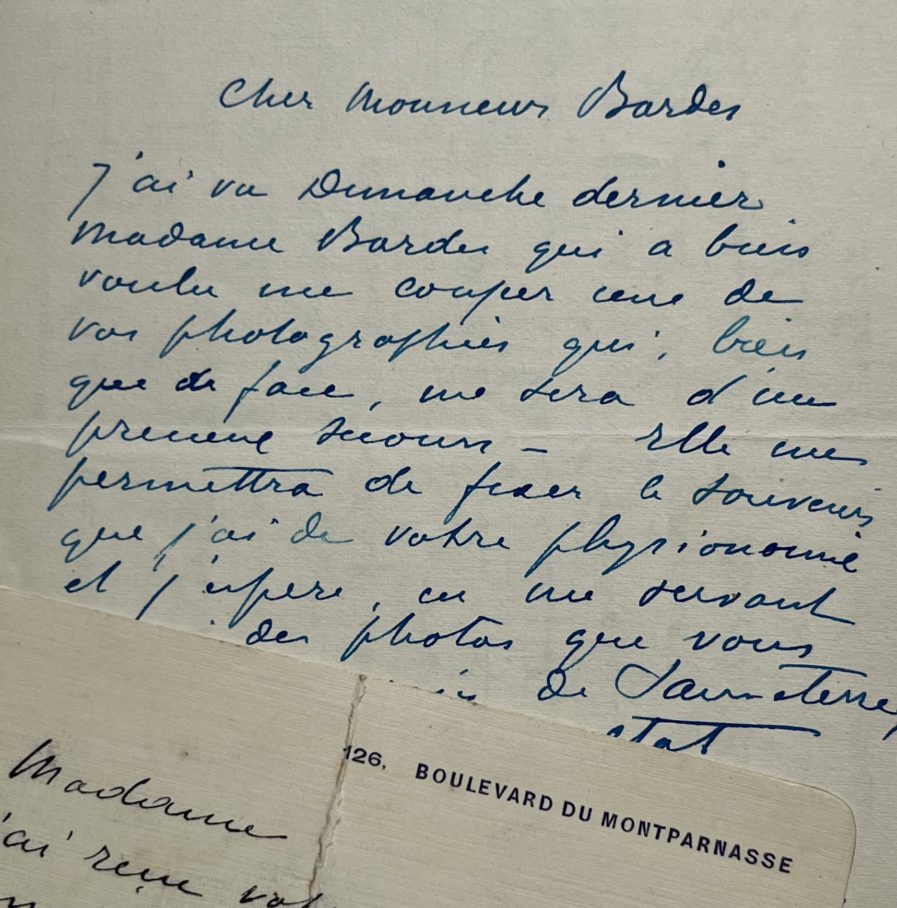 Cher Monsieur Bardes
J'ai vu Dimanche dernier
Madame Bardes qui a bien
voulu me couper une de
vos photographies qui, bien
que de face, me sera d'un
premier secours - Elle me
permettra de fixer le souvenir
que j'ai de votre physionomie
et j'espère, en me servant
des photos que vous
de Sauveterre,
126, BOULEVARD DU MONTPARNASSE
Madame
J'ai reçu